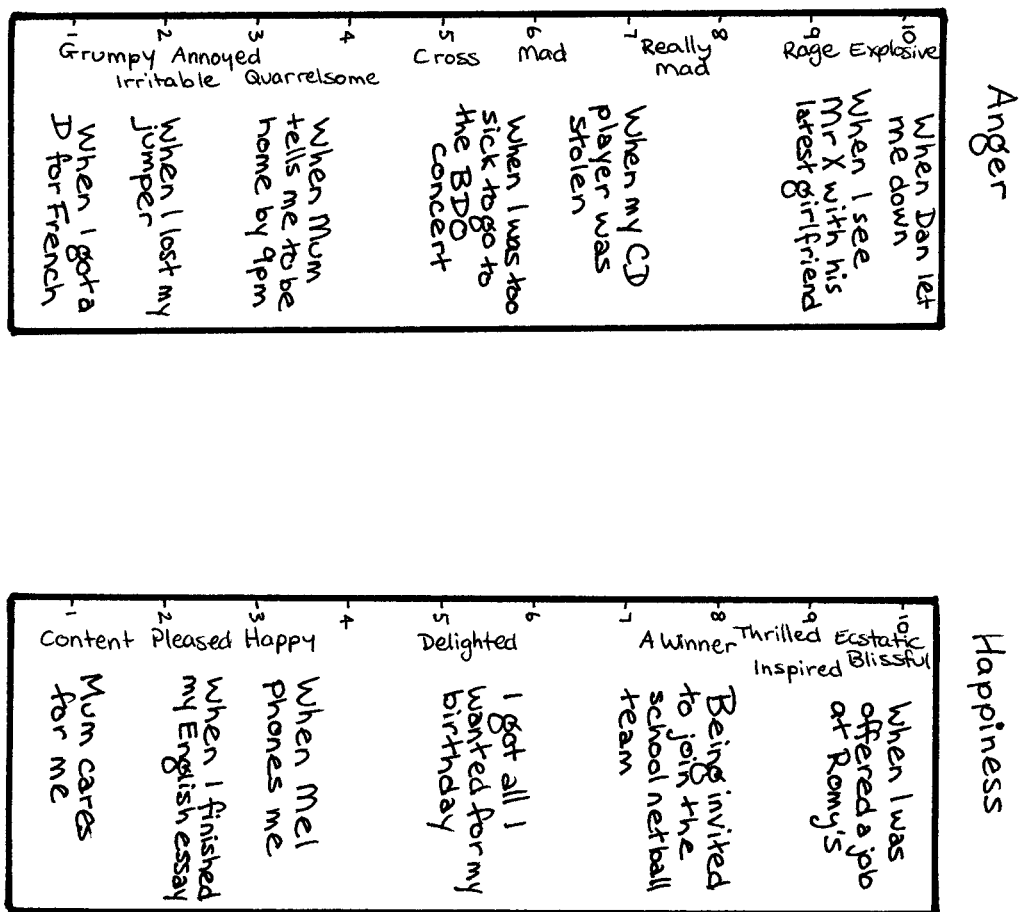 Anger
1
2
3
4
5
6
7
8
9
10
Grumpy
Irritable
Annoyed
Quarrelsome
Cross
Mad
Really
mad
Rage
Explosive
When I got a
D for French
When I lost my
jumper
When Mum
tells me to be
home by 9pm
When I was too
sick to go to
the BDO
concert
When my CD
player was
stolen
When I see
Mr X with his
latest girlfriend
When Dan let
me down
Happiness
1
2
3
4
5
6
7
8
9
10
Content
Pleased
Happy
Delighted
A Winner
Thrilled
Inspired
Ecstatic
Blissful
Mum cares
for me
When I finished
my English essay
When Mel
phones me
I got all I
wanted for my
birthday
Being invited
to join the
school netball
team
When I was
offered a job
at Romy's